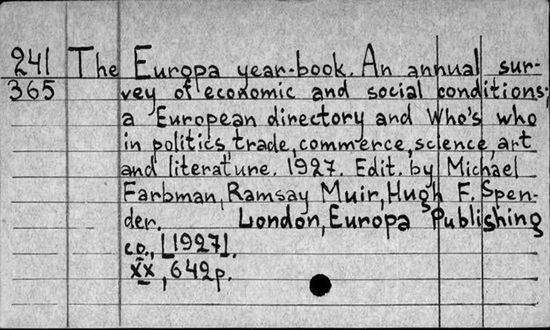 241 The Europa year-book. An annual sur-
365 vey of economic and social conditions;
a European directory and Who's who
in politics, trade, commerce, science, art
and literature. 1927. Edit. by Michael
Farbman, Ramsay Muir, Hugh F. Spen-
der. London, Europa Publishing
co., [1927].
xx, 642p.